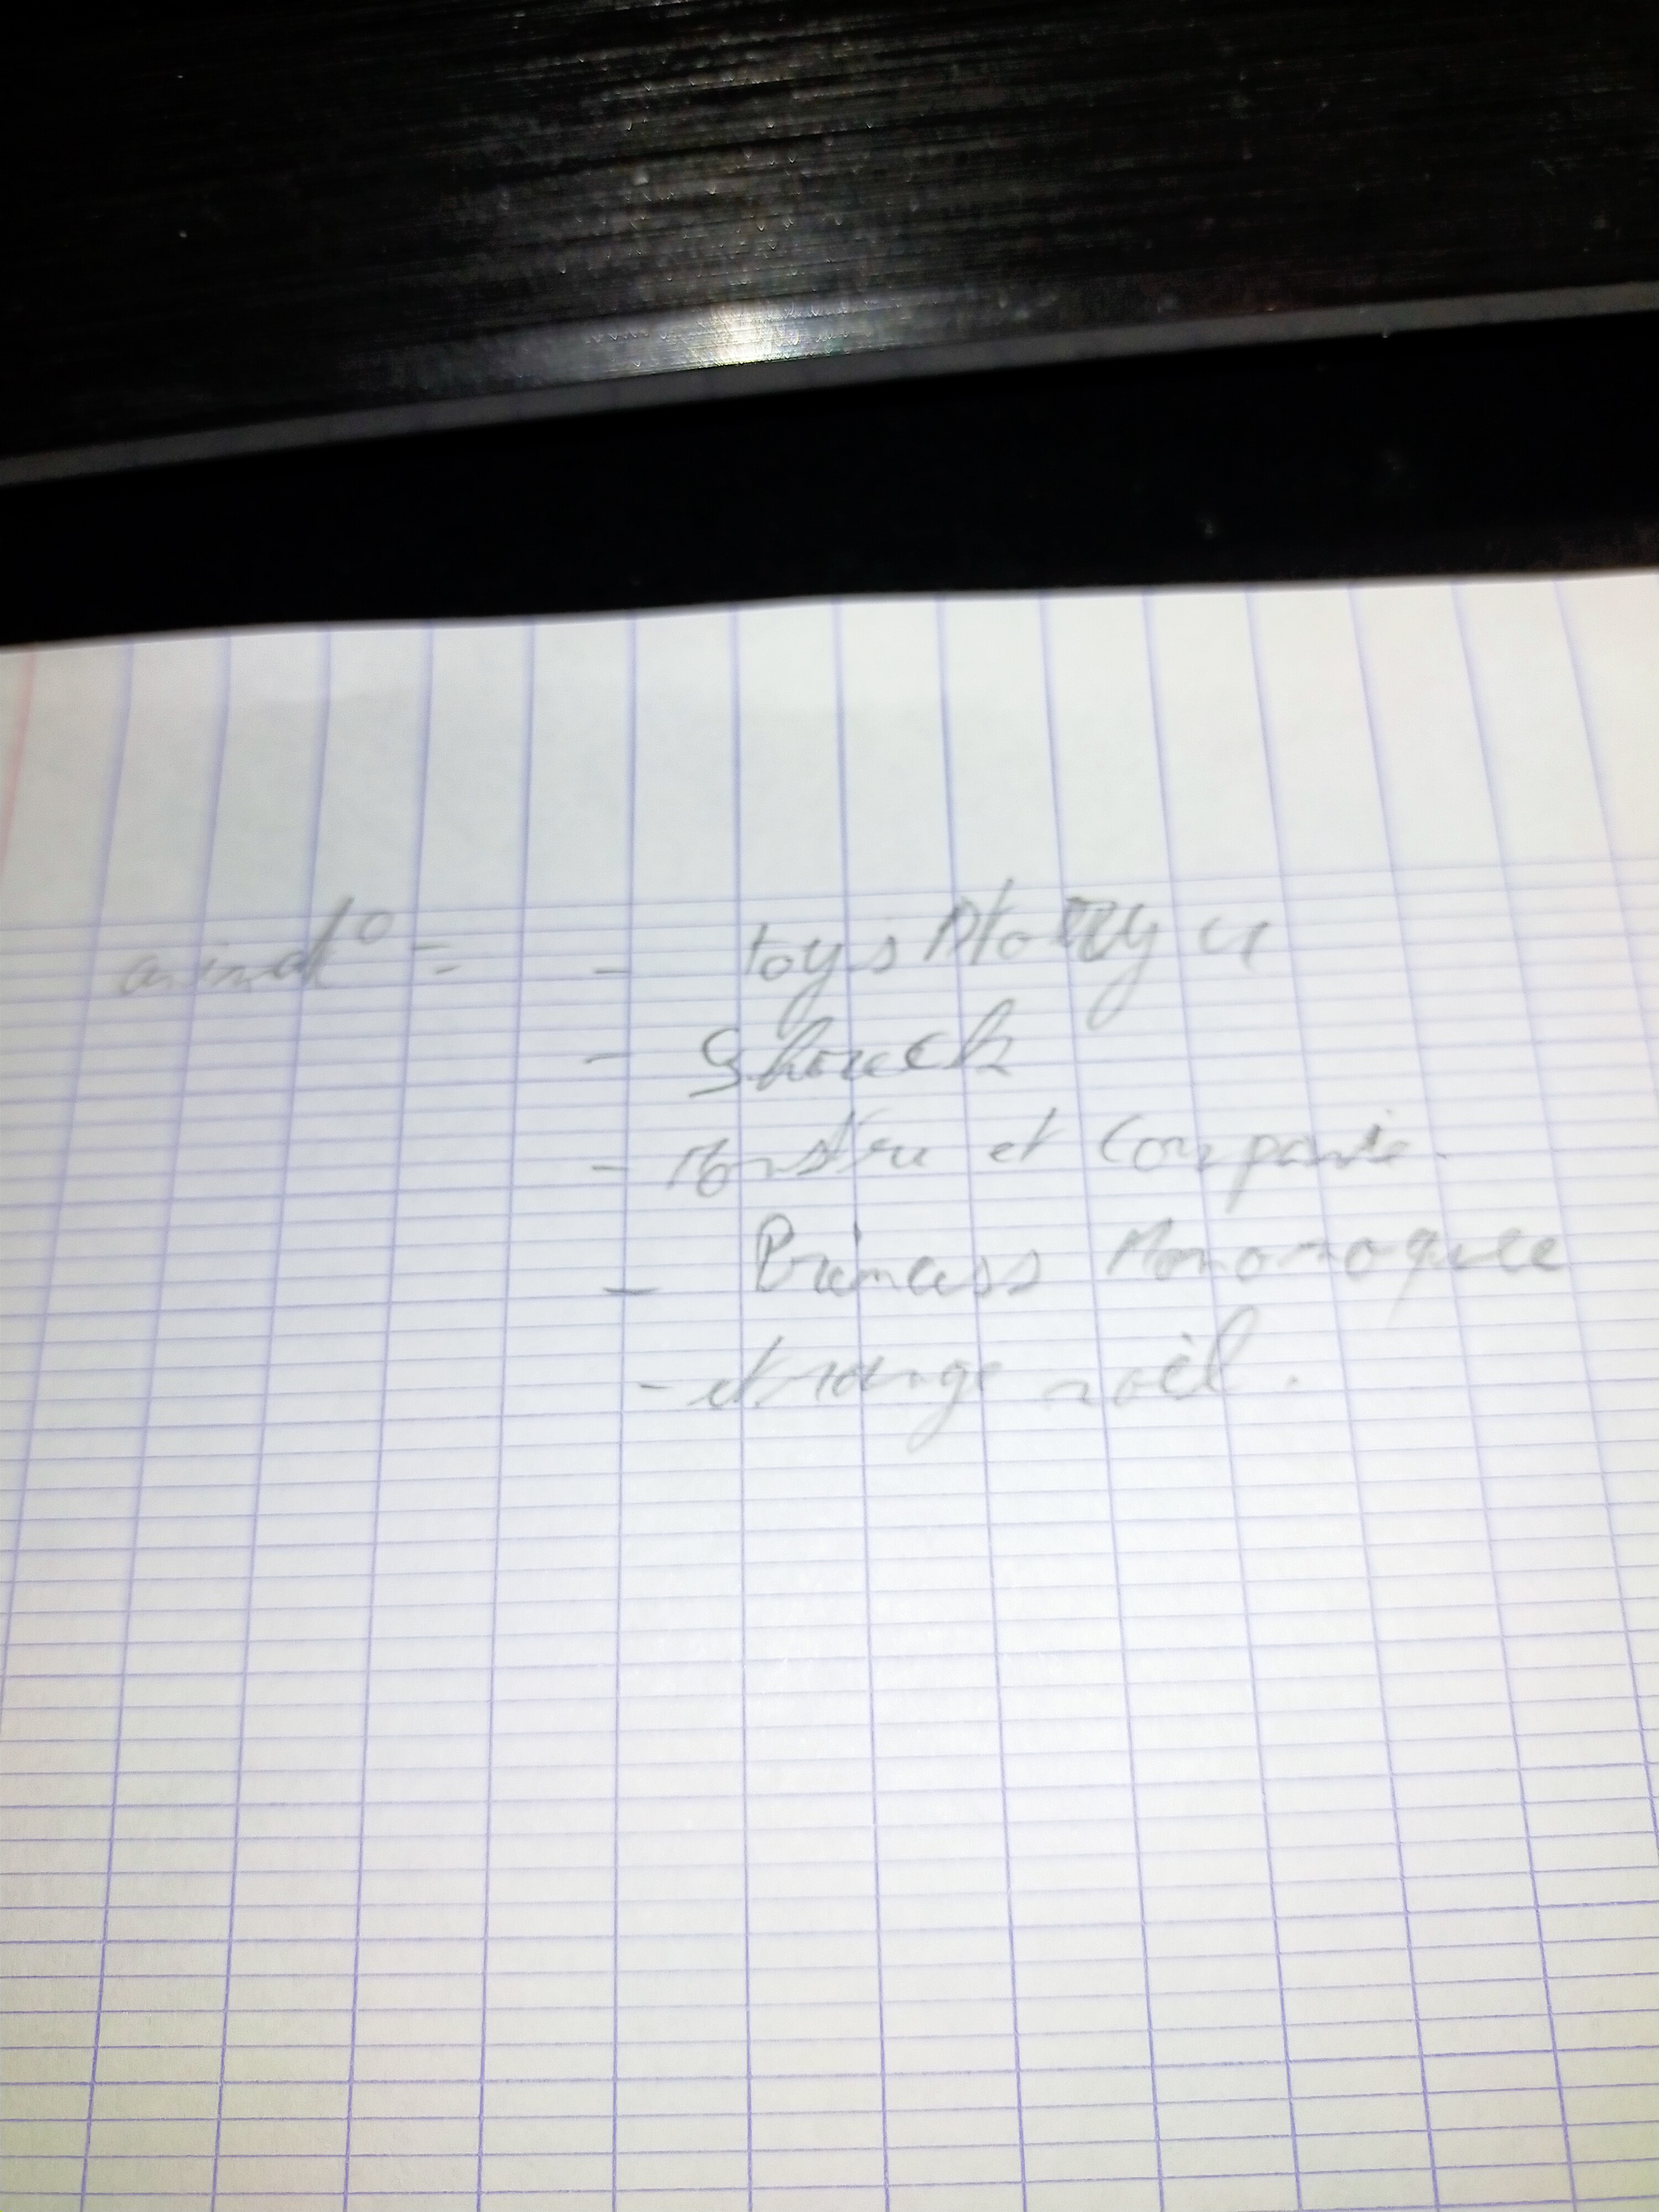 animat° = - toys story 4
- Shreck
- Monstre et Companie.
- Princess Mononoque
- etrange noël.